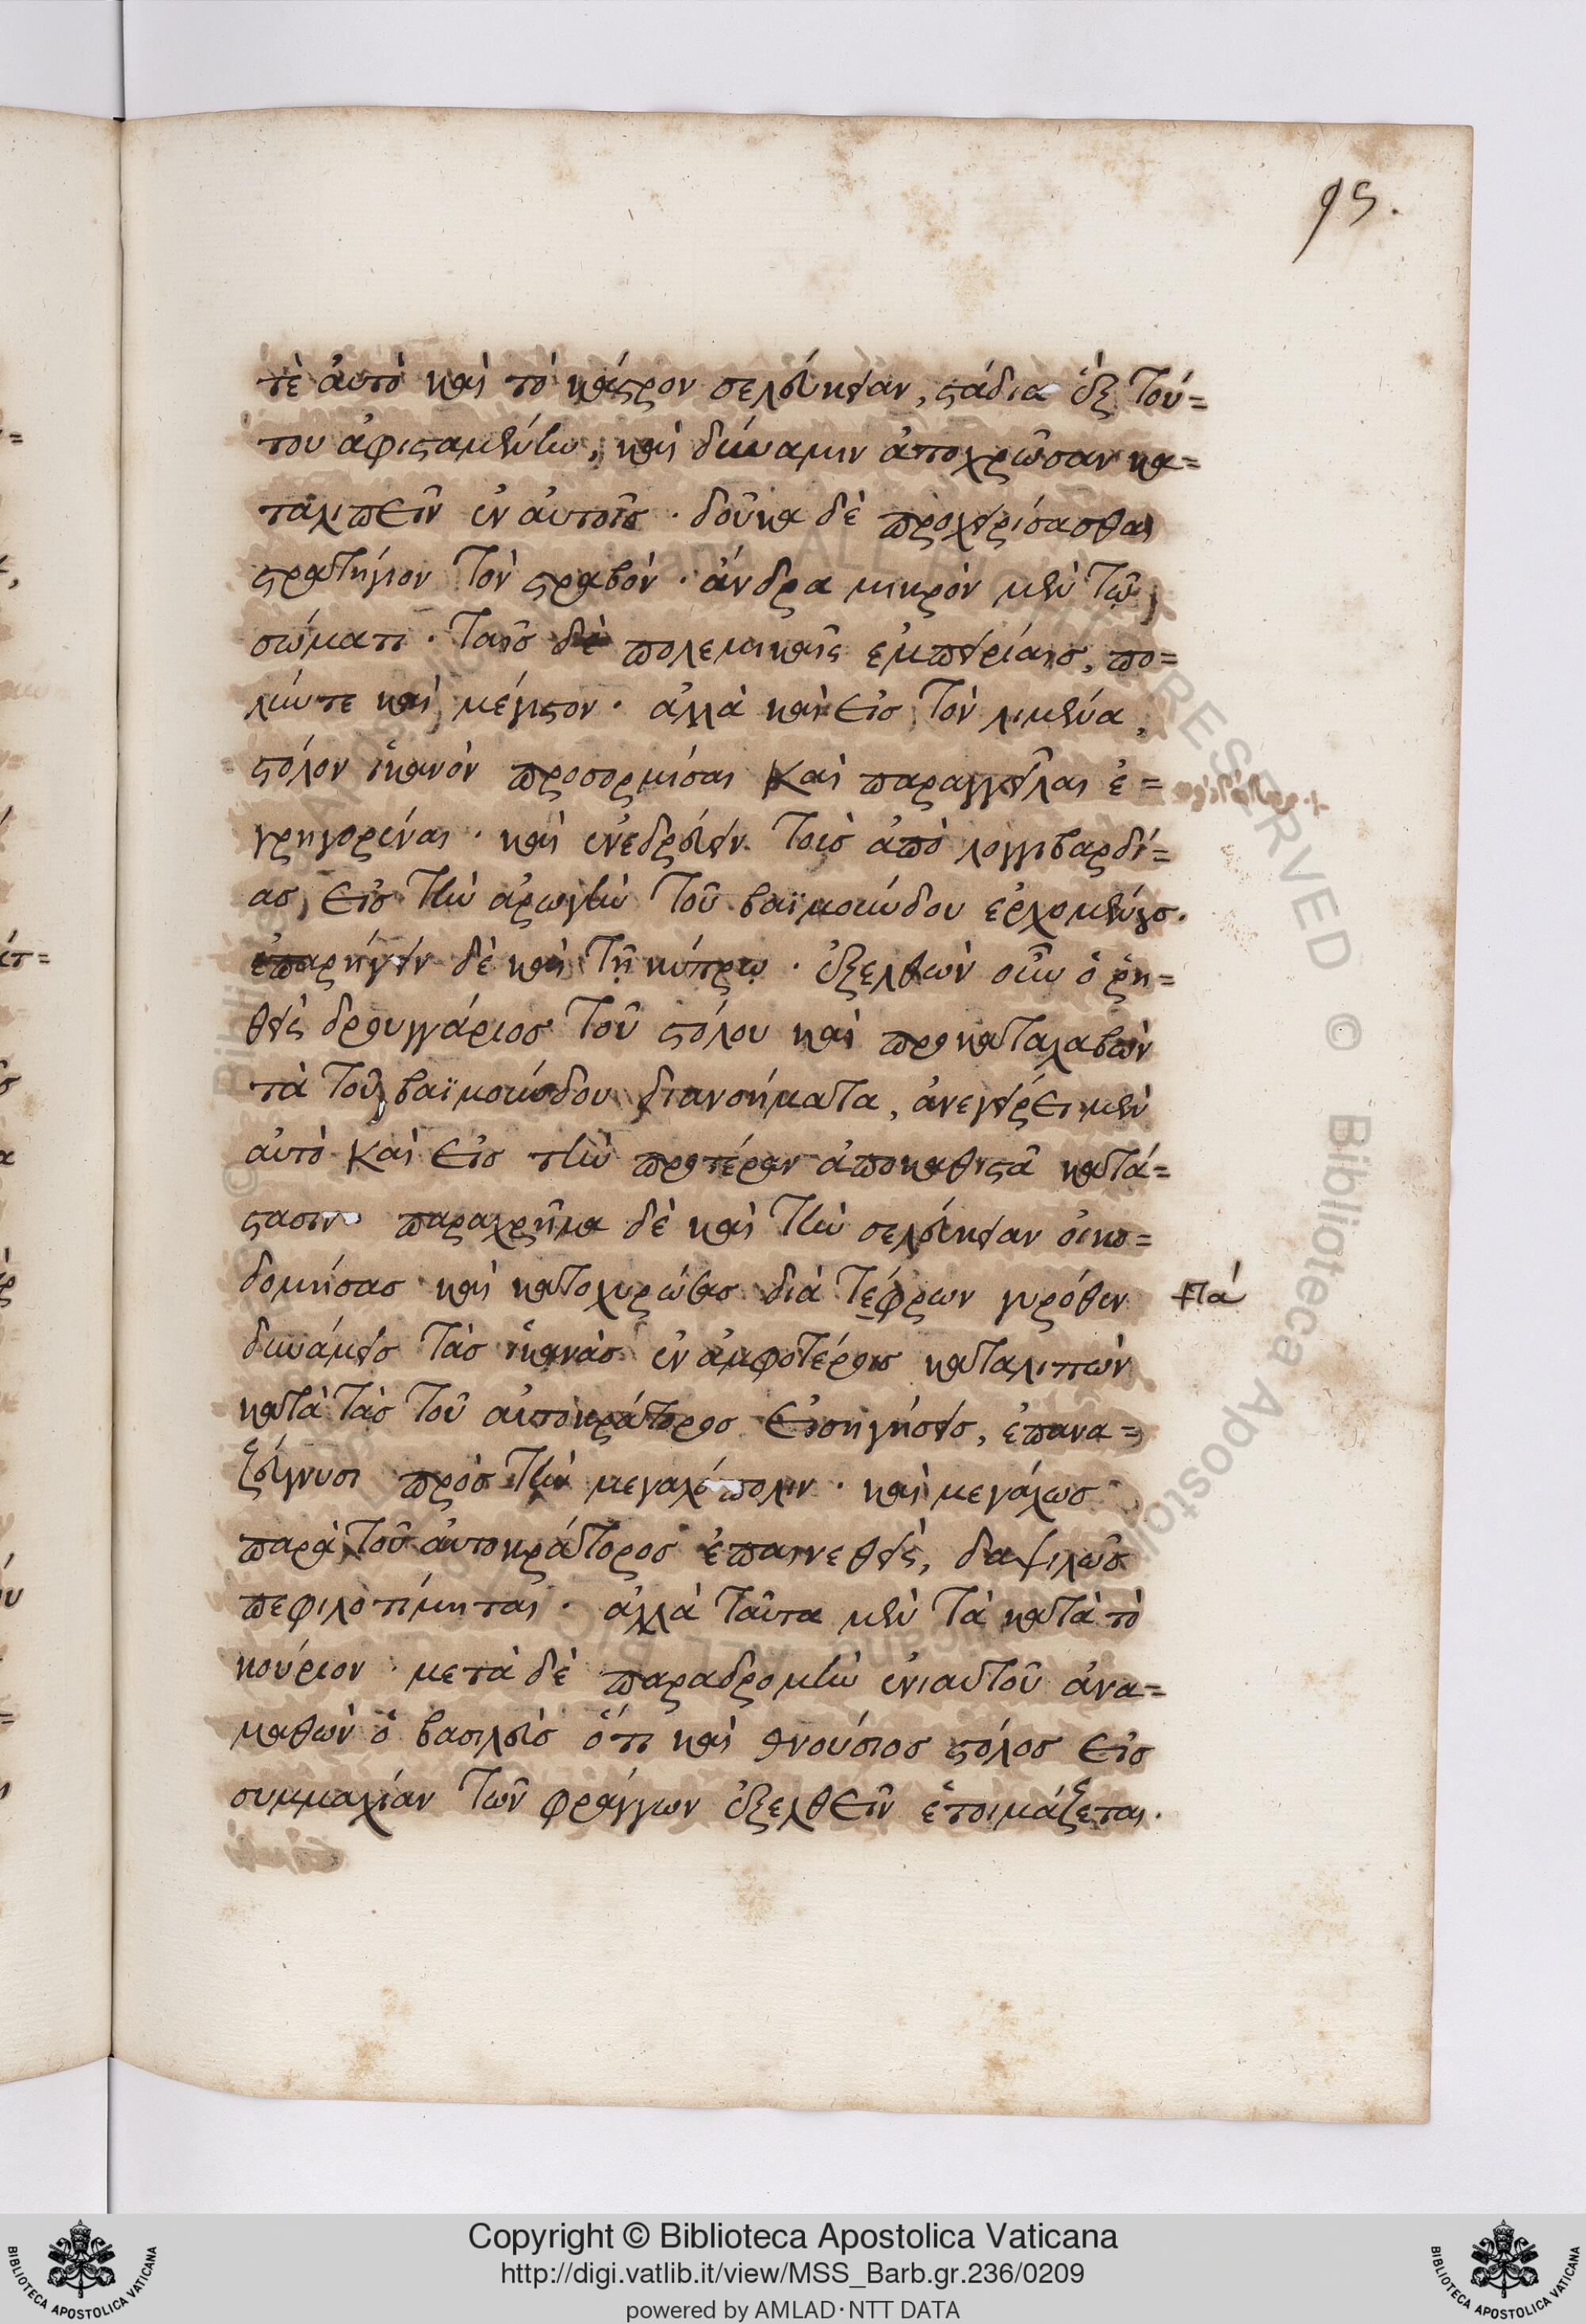 95.
τὲ αὐτὸ καὶ τὸ κάστρον σελεύκειαν, στάδια ἓξ τού=
του ἀφισταμένην, καὶ δύναμιν ἀποχρῶσαν κα=
ταλιπεῖν ἐν αὐτοῖς · δοῦκα δὲ προχειρίσασθαι
στρατήγιον τὸν στραβόν · ἄνδρα μικρὸν μὲν τῶ
σώματι · ταῖς δὲ πολεμικαῖς ἐμπειρίαις, πο=
λύντε καὶ μέγιστον · ἀλλὰ καὶ εἰς τὸν λιμένα,
στόλον ἱκανὸν προσορμίσαι καὶ παραγγεῖλαι ἐ=
γρηγορέναι · καὶ ἐνεδρεύειν τοῖς ἀπὸ λογγιβαρδί=
ας εἰς τὴν ἀρωγὴν τοῦ βαϊμούνδου ἐρχομένοις.
ἐπαρήγειν δὲ καὶ τῇ κύπρῳ · ἐξελθὼν οὖν ὁ ῥη=
θεὶς δρουγγάριος τοῦ στόλου καὶ προκαταλαβὼν
τὰ τοῦ βαϊμούνδου διανοήματα, ἀνεγείρει μὲν
αὐτὸ καὶ εἰς τὴν προτέραν ἀποκαθιστᾶ κατά=
στασιν · παραχρῆμα δὲ καὶ τὴν σελεύκειαν οἰκο=
δομήσας καὶ κατοχυρώσας διὰ τέφρων γυρόθεν
+ τά
δυνάμεις τὰς ἱκανὰς ἐν ἀμφοτέροις καταλιπὼν
κατὰ τὰς τοῦ αὐτοκράτορος εἰσηγήσεις, ἐπανα=
ζεύγνυσι πρὸς τὴν μεγαλόπολιν · καὶ μεγάλως
παρὰ τοῦ αὐτοκράτορος ἐπαινεθεὶς, δαψιλῶς
πεφιλοτίμηται · ἀλλὰ ταῦτα μὲν τὰ κατὰ τὸ
κούριον · μετὰ δὲ παραδρομὴν ἐνιαυτοῦ ἀνα=
μαθὼν ὁ βασιλεὺς ὅτι καὶ γενούσιος στόλος εἰς
συμμαχίαν τῶν φράγγων ἐξελθεῖν ἑτοιμάζεται.
Copyright © Biblioteca Apostolica Vaticana
http://digi.vatlib.it/view/MSS_Barb.gr.236/0209
powered by AMLAD·NTT DATA